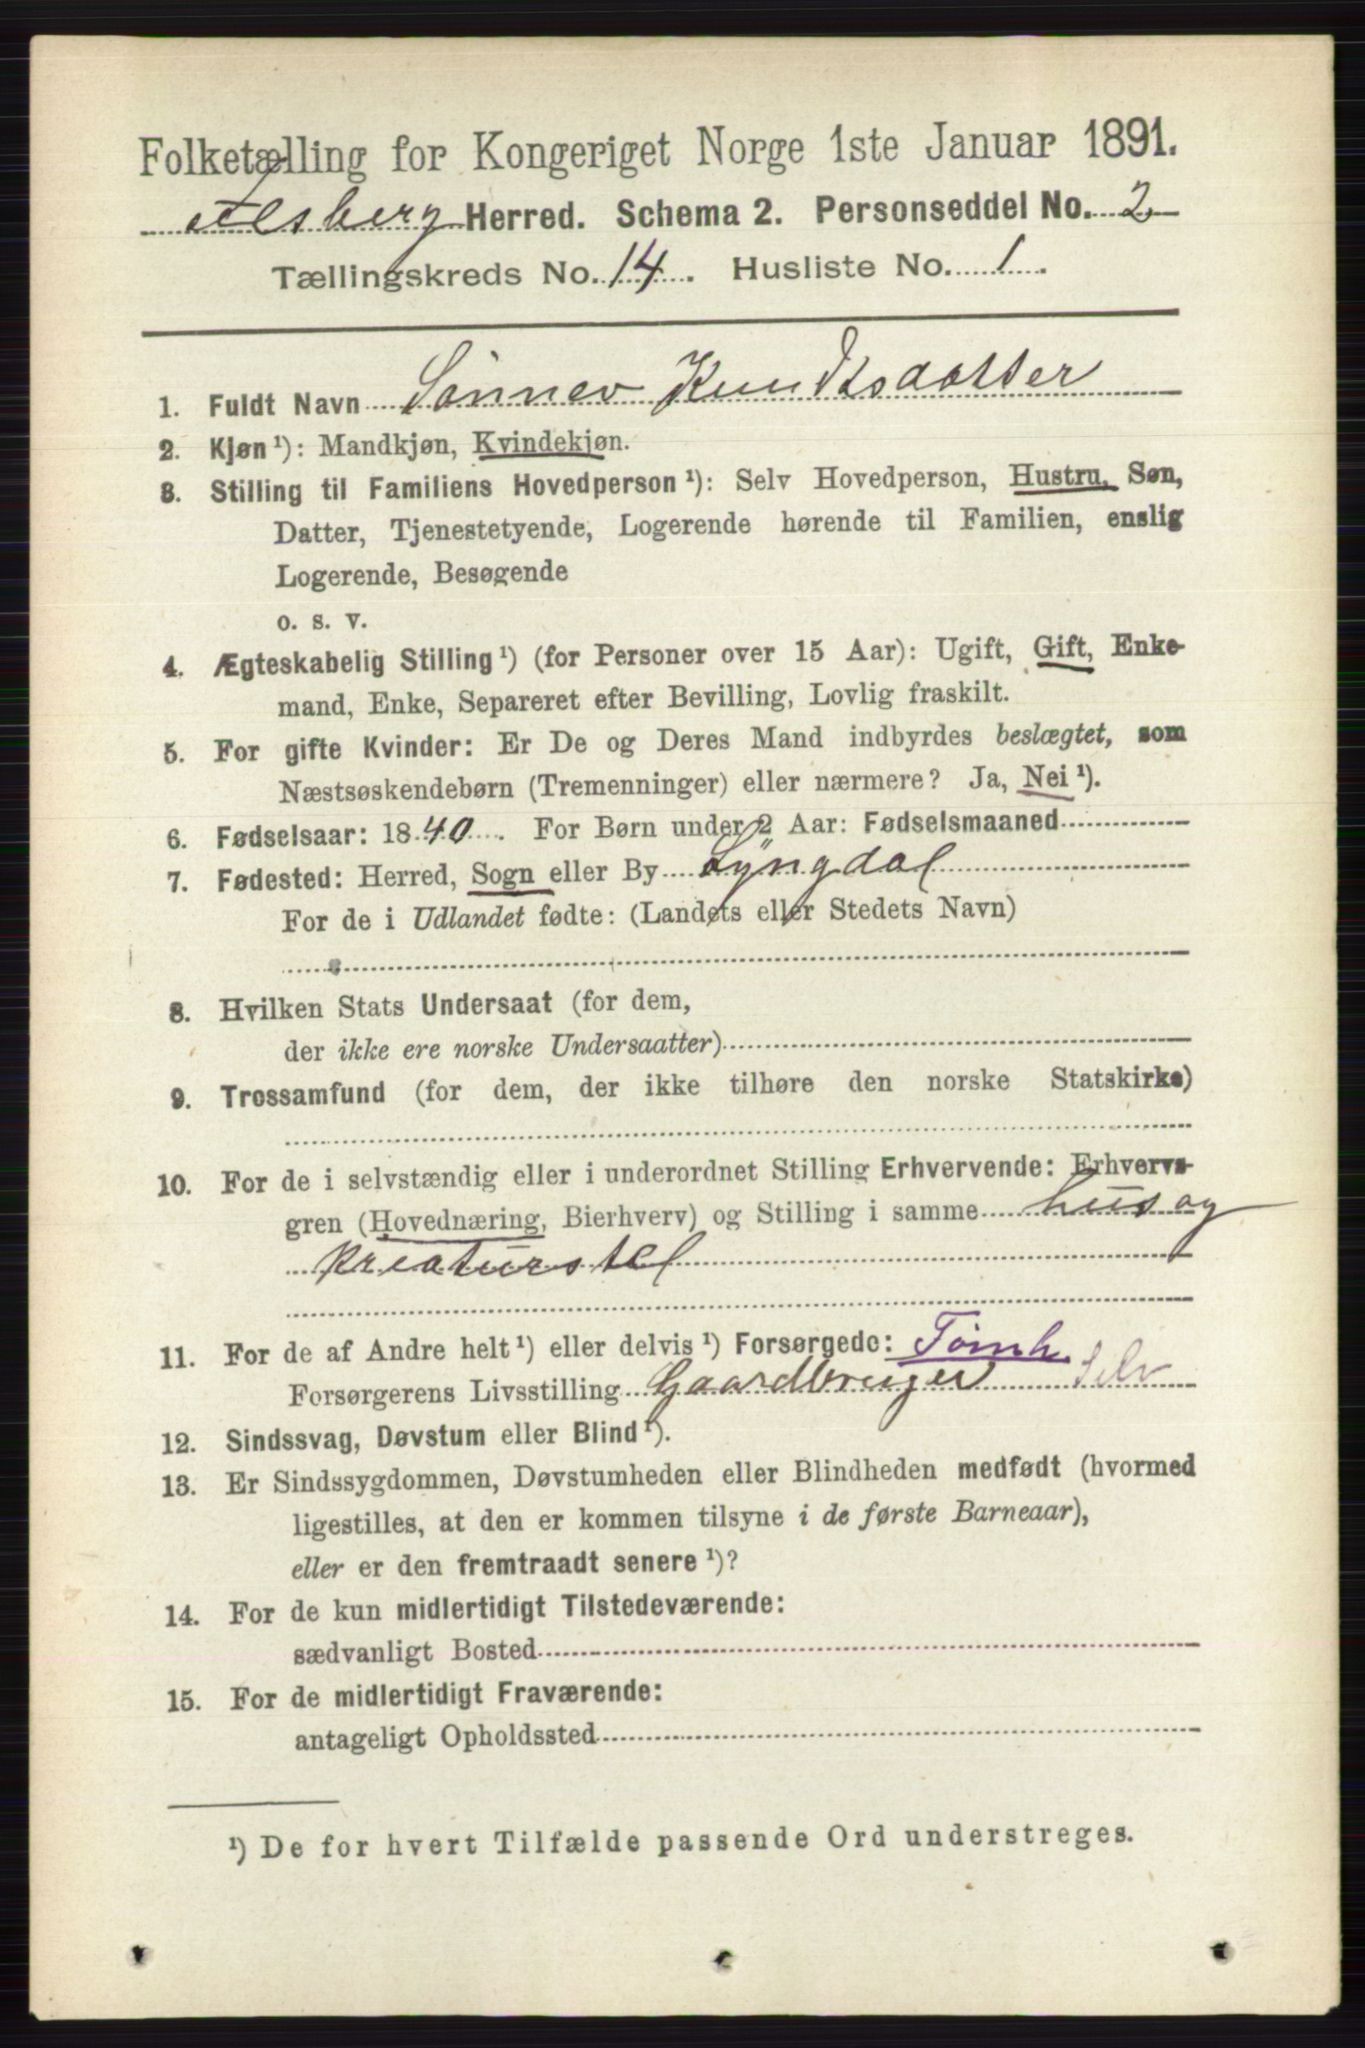 Folketælling for Kongeriget Norge 1ste Januar 1891.
Flesberg Herred. Schema 2. Personseddel No. 2
Tællingskreds No. 14. Husliste No. 1.
1. Fuldt Navn Sönnev Knudtsdatter
2. Kjøn ¹): Mandkjøn, Kvindekjøn.
3. Stilling til Familiens Hovedperson ¹): Selv Hovedperson, Hustru, Søn,
Datter, Tjenestetyende, Logerende hørende til Familien, enslig
Logerende, Besøgende
o. s. v.
4. Ægteskabelig Stilling ¹) (for Personer over 15 Aar): Ugift, Gift, Enke-
mand, Enke, Separeret efter Bevilling, Lovlig fraskilt.
5. For gifte Kvinder: Er De og Deres Mand indbyrdes beslægtet, som
Næstsøskendebørn (Tremenninger) eller nærmere? Ja, Nei ¹).
6. Fødselsaar: 1840. For Børn under 2 Aar: Fødselsmaaned
7. Fødested: Herred, Sogn eller By Lyngdal
For de i Udlandet fødte: (Landets eller Stedets Navn)
8. Hvilken Stats Undersaat (for dem,
der ikke ere norske Undersaatter)
9. Trossamfund (for dem, der ikke tilhøre den norske Statskirke)
10. For de i selvstændig eller i underordnet Stilling Erhvervende: Erhvervs-
gren (Hovednæring, Bierhverv) og Stilling i samme hus og
kreaturstel
11. For de af Andre helt ¹) eller delvis ¹) Forsørgede: Tömh
Forsørgerens Livsstilling Gaardbruger Selv
12. Sindssvag, Døvstum eller Blind ¹).
13. Er Sindssygdommen, Døvstumheden eller Blindheden medfødt (hvormed
ligestilles, at den er kommen tilsyne i de første Barneaar),
eller er den fremtraadt senere ¹)?
14. For de kun midlertidigt Tilstedeværende:
sædvanligt Bosted
15. For de midlertidigt Fraværende:
antageligt Opholdssted
¹) De for hvert Tilfælde passende Ord understreges.